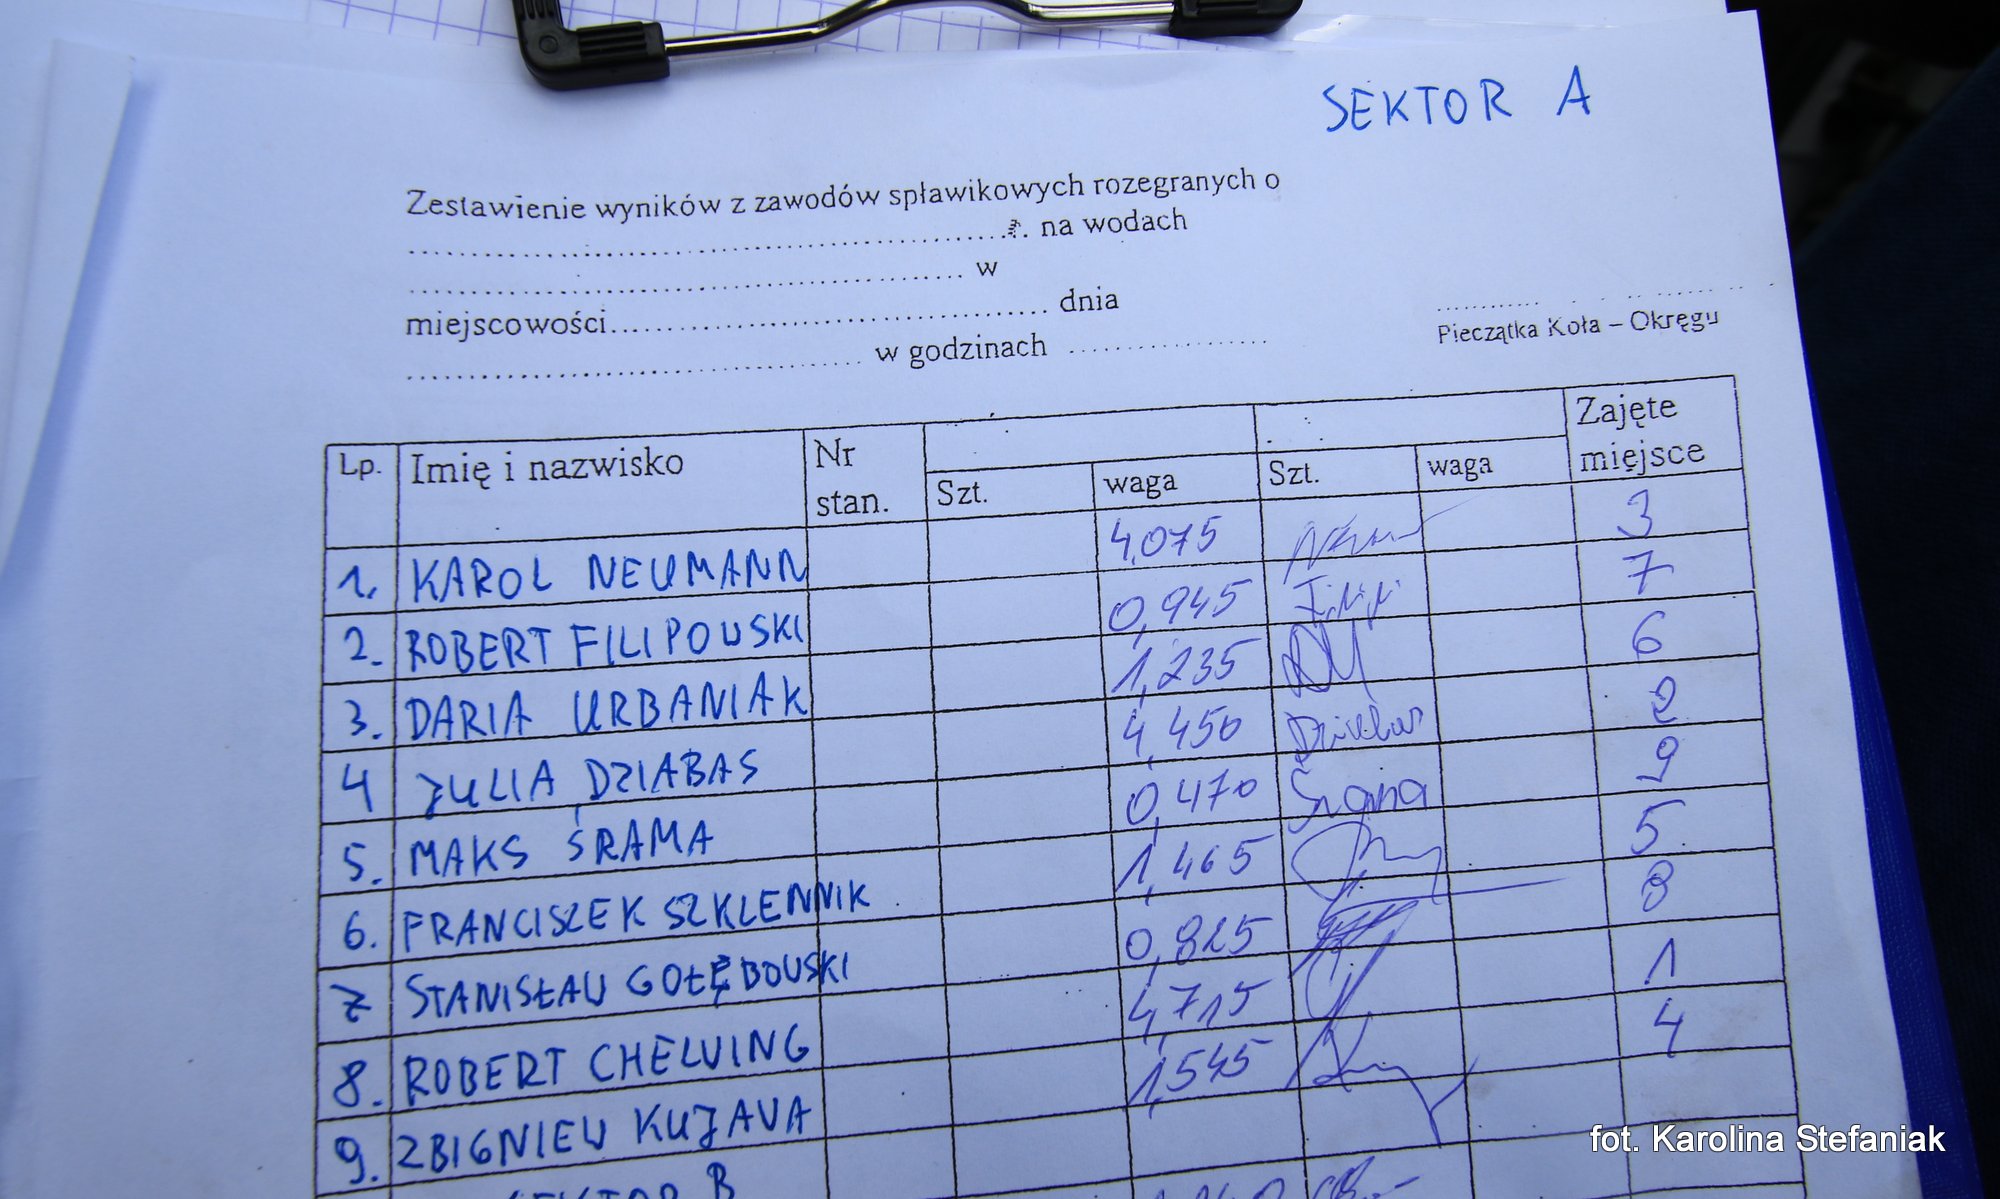 SEKTOR A
Zestawienie wyników z zawodów spławikowych rozegranych o
na wodach
w
miejscowości dnia
w godzinach
Pieczątka Koła – Okręgu
Lp. Imię i nazwisko Nr stan. Szt. waga Szt. waga Zajęte miejsce
1. KAROL NEUMANN 4,075 3
2. ROBERT FILIPOWSKI 0,945 7
3. DARIA URBANIAK 1,235 6
4 JULIA DZIABAS 4,450 2
5. MAKS ŚRAMA 0,470 Śrama 9
6. FRANCISZEK SZKLENNIK 1,465 5
7 STANISŁAW GOŁĘBOWSKI 0,825 8
8. ROBERT CHELVING 4,715 1
9. ZBIGNIEW KUJAWA 1,545 4
SEKTOR B
fot. Karolina Stefaniak